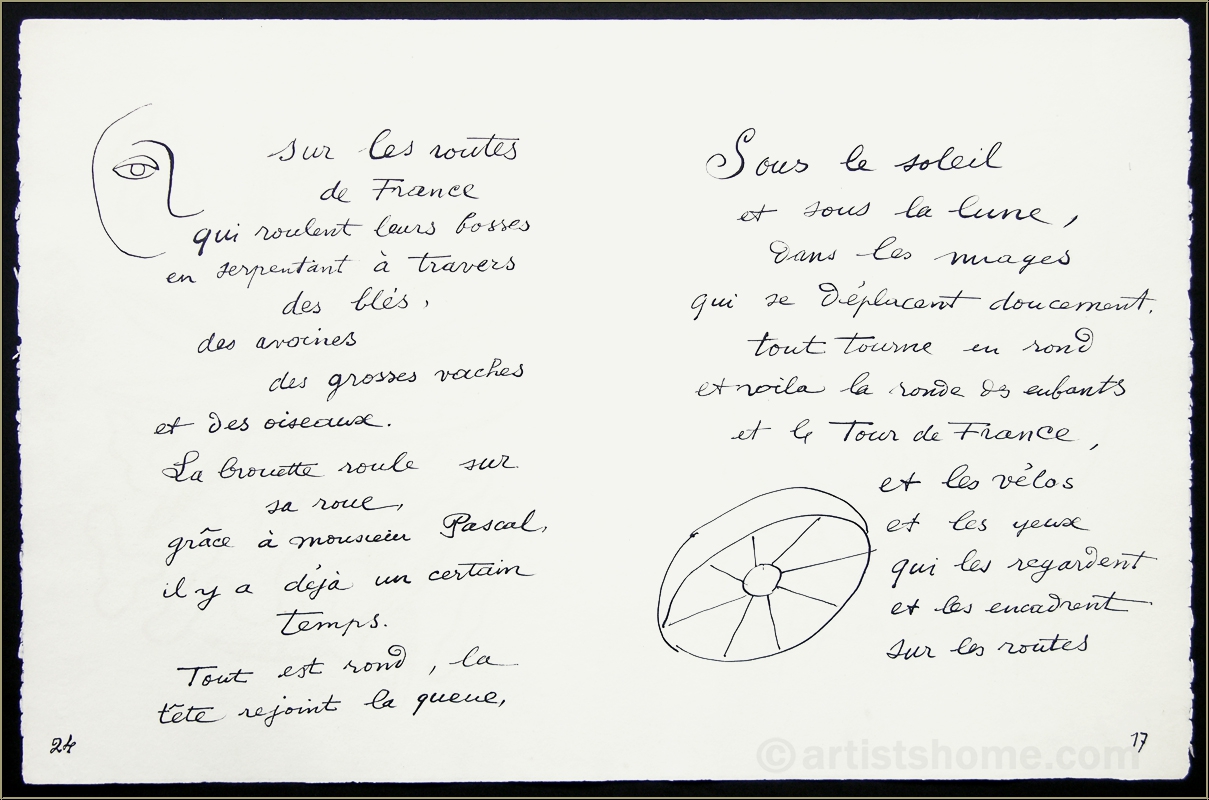 sur les routes
de France
qui roulent leurs bosses
en serpentant à travers
des blés,
des avoines
des grosses vaches
et des oiseaux.
La brouette roule sur
sa roue,
grâce à monsieur Pascal,
il y a déjà un certain
temps.
Tout est rond, la
tête rejoint la queue,
24
Sous le soleil
et sous la lune,
dans les nuages
qui se déplacent doucement.
tout tourne en rond
et voila la ronde des enfants
et le Tour de France,
et les vélos
et les yeux
qui les regardent
et les encadrent
sur les routes
17
© artistshome.com